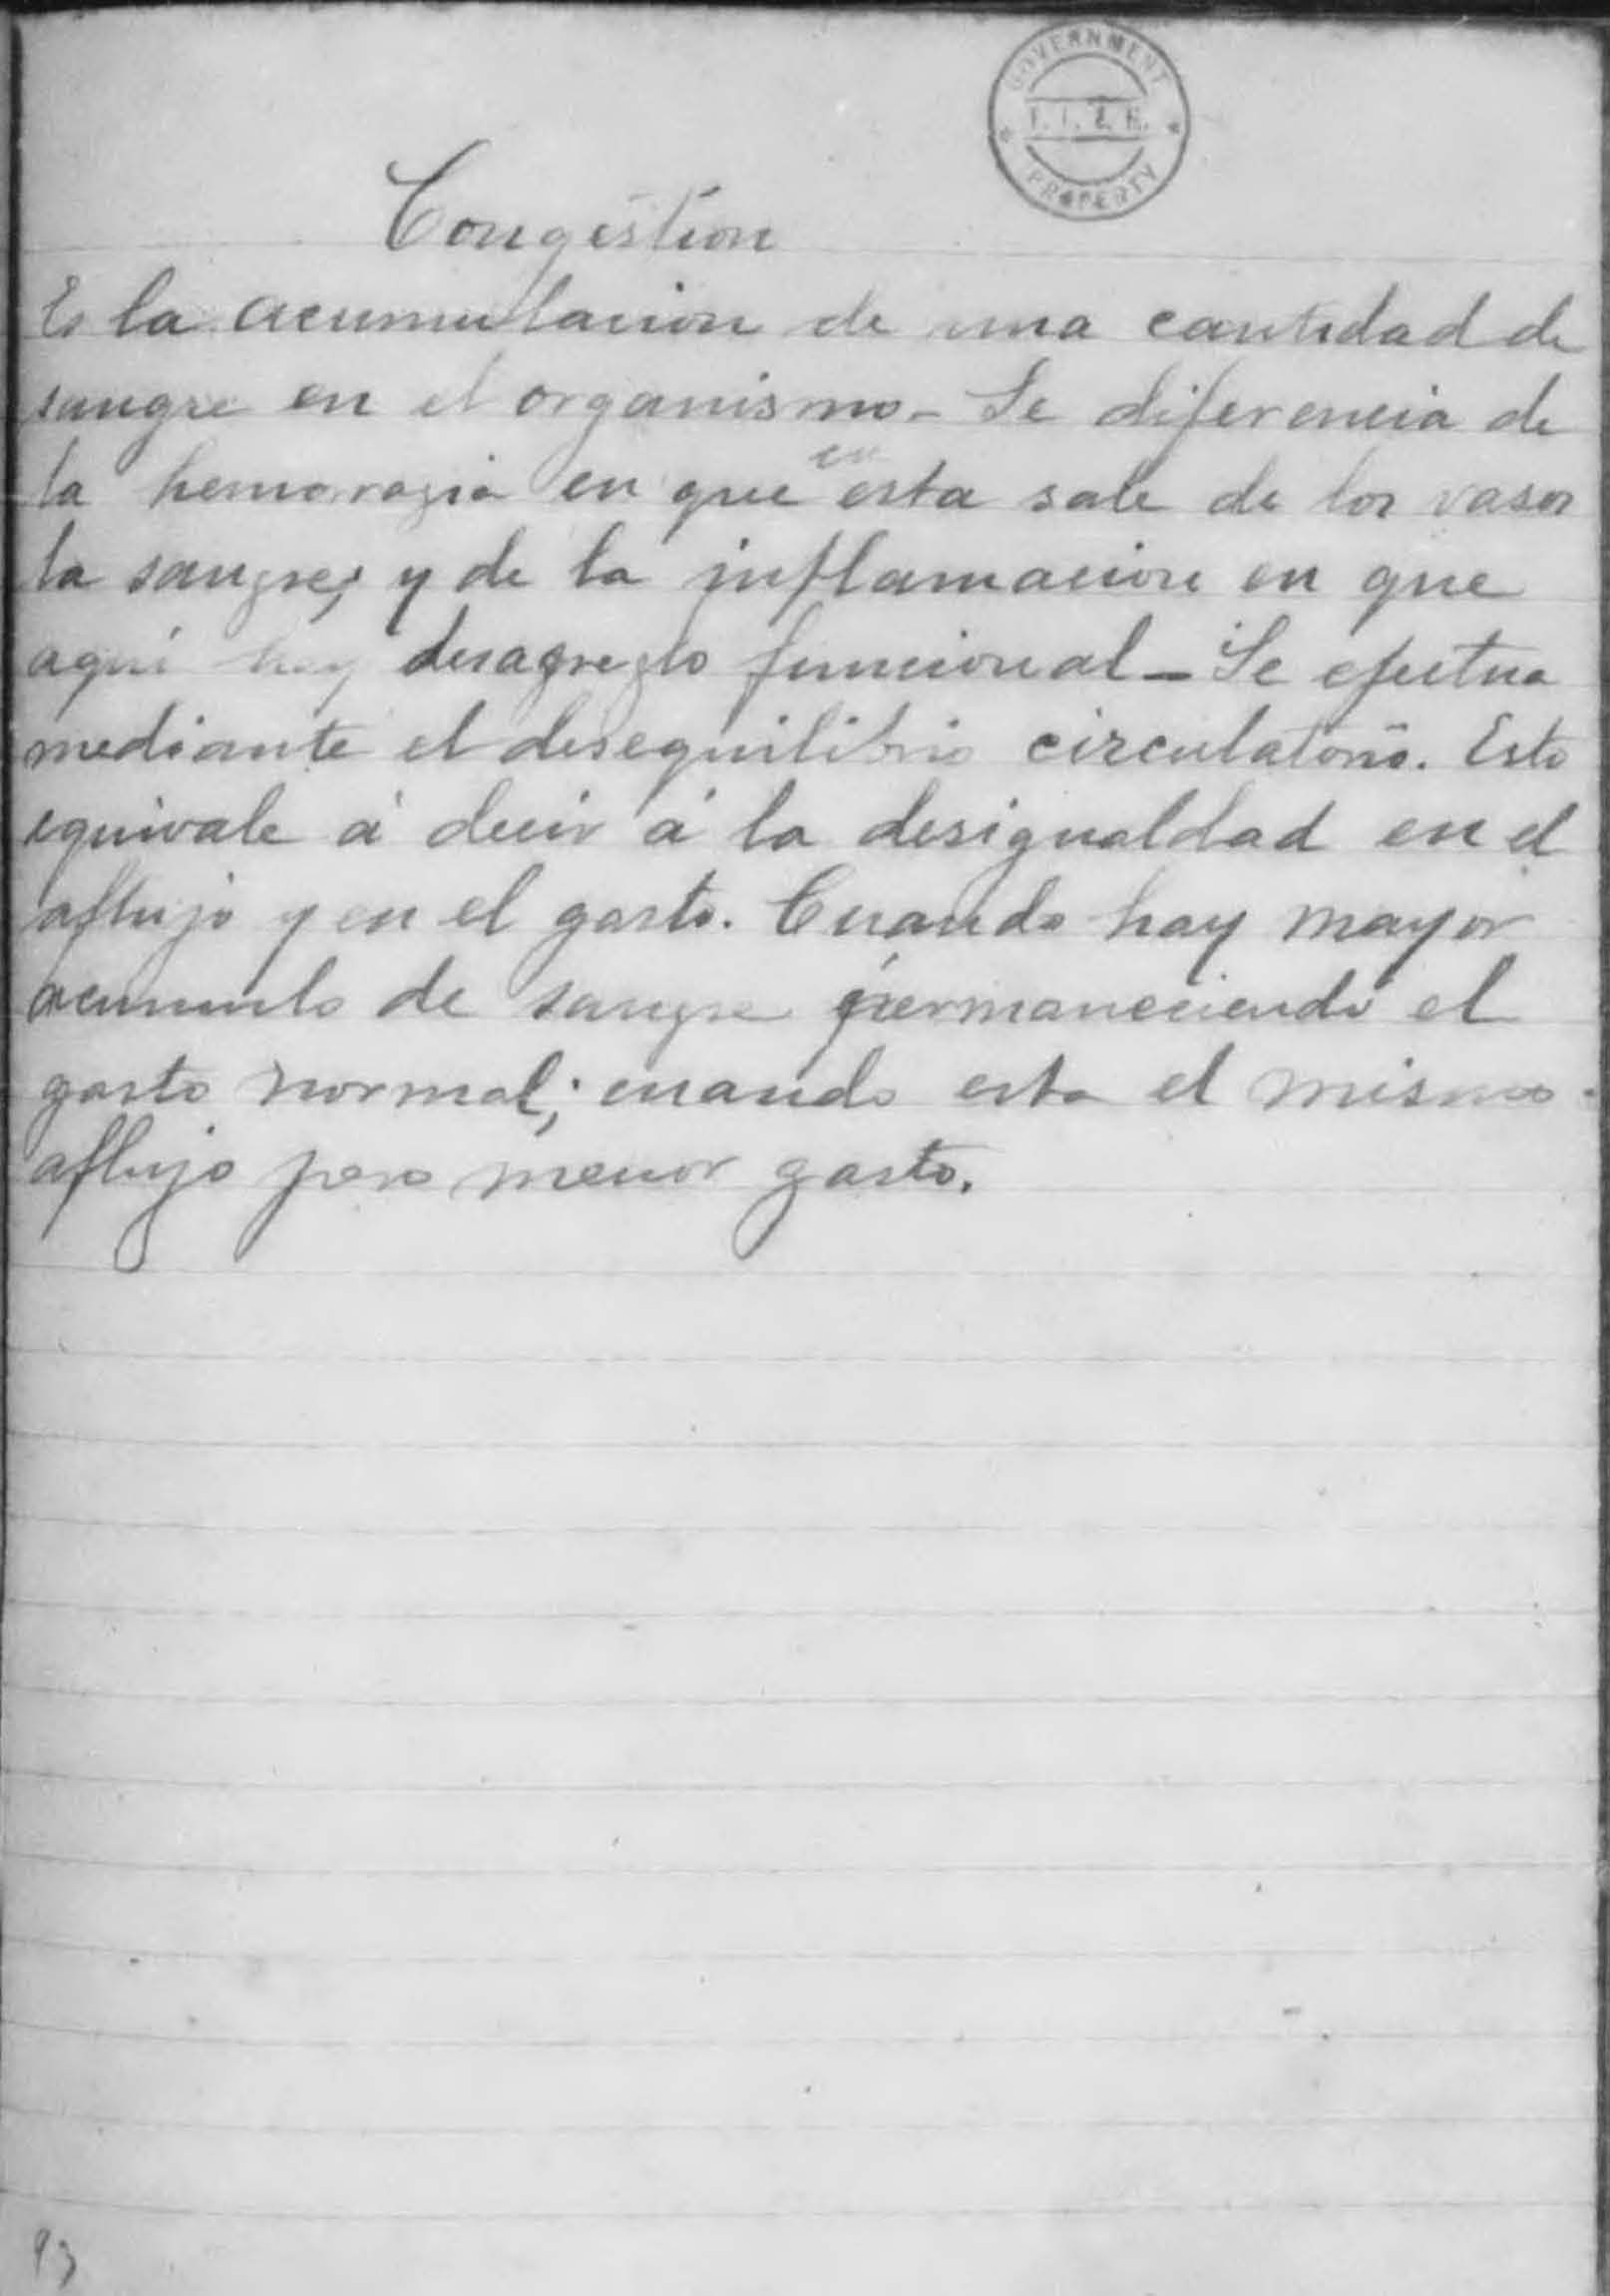 GOVERNMENT
PROPERTY
Congestion
Es la acumulacion de una cantidad de
sangre en el organismo - Se diferencia de
la hemorragia en que en esta sale de los vasos
la sangre; y de la inflamacion en que
aqui hay desagreglo funcional - Se efectua
mediante el desequilibrio circulatorio. Esto
equivale á decir á la desigualdad en el
aflujo y en el gasto. Cuando hay mayor
acumulo de sangre permaneciendo el
gasto normal; cuando esta el mismo
aflujo pero menor gasto.
93